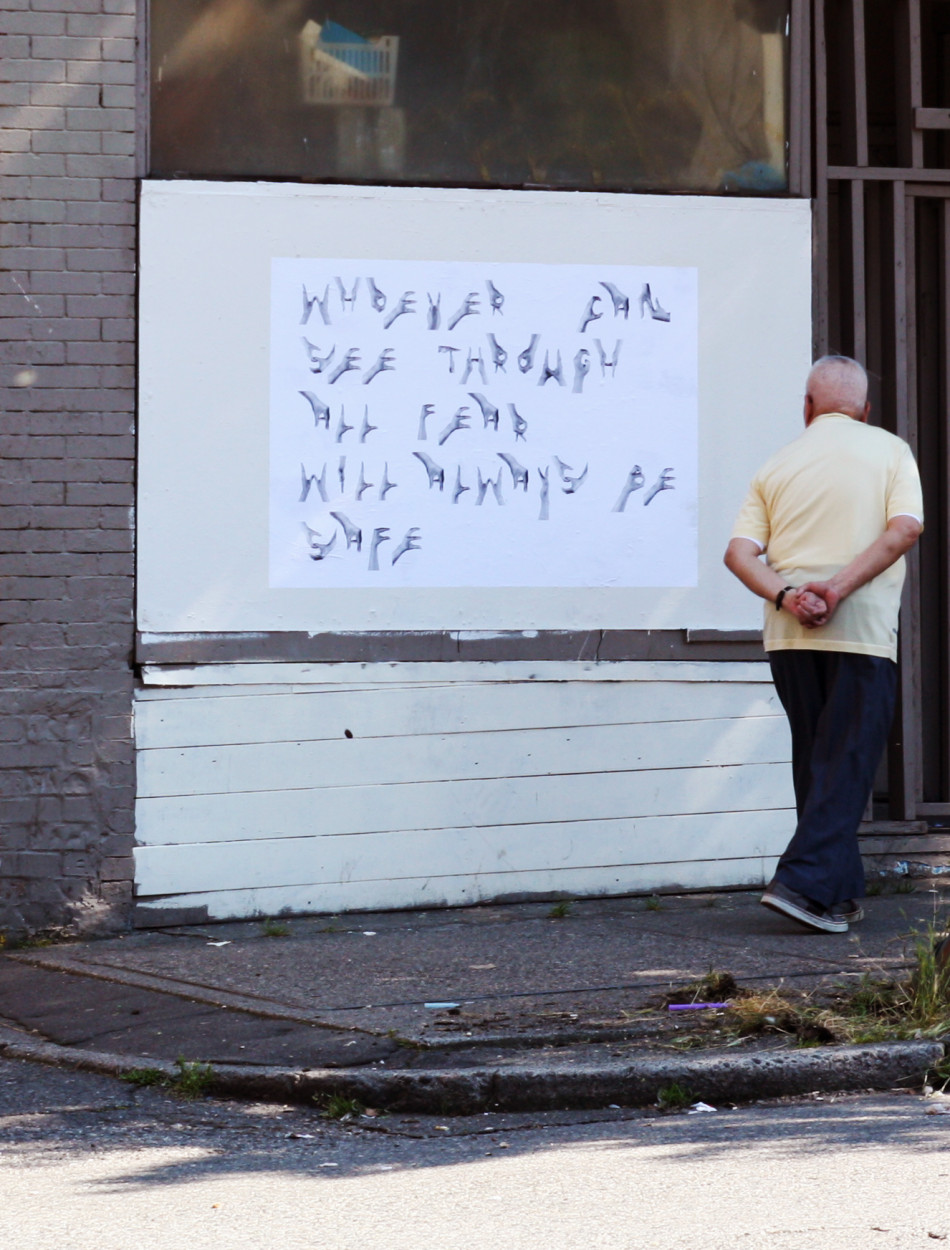 WHOEVER CAN
SEE THROUGH
ALL FEAR
WILL ALWAYS BE
SAFE